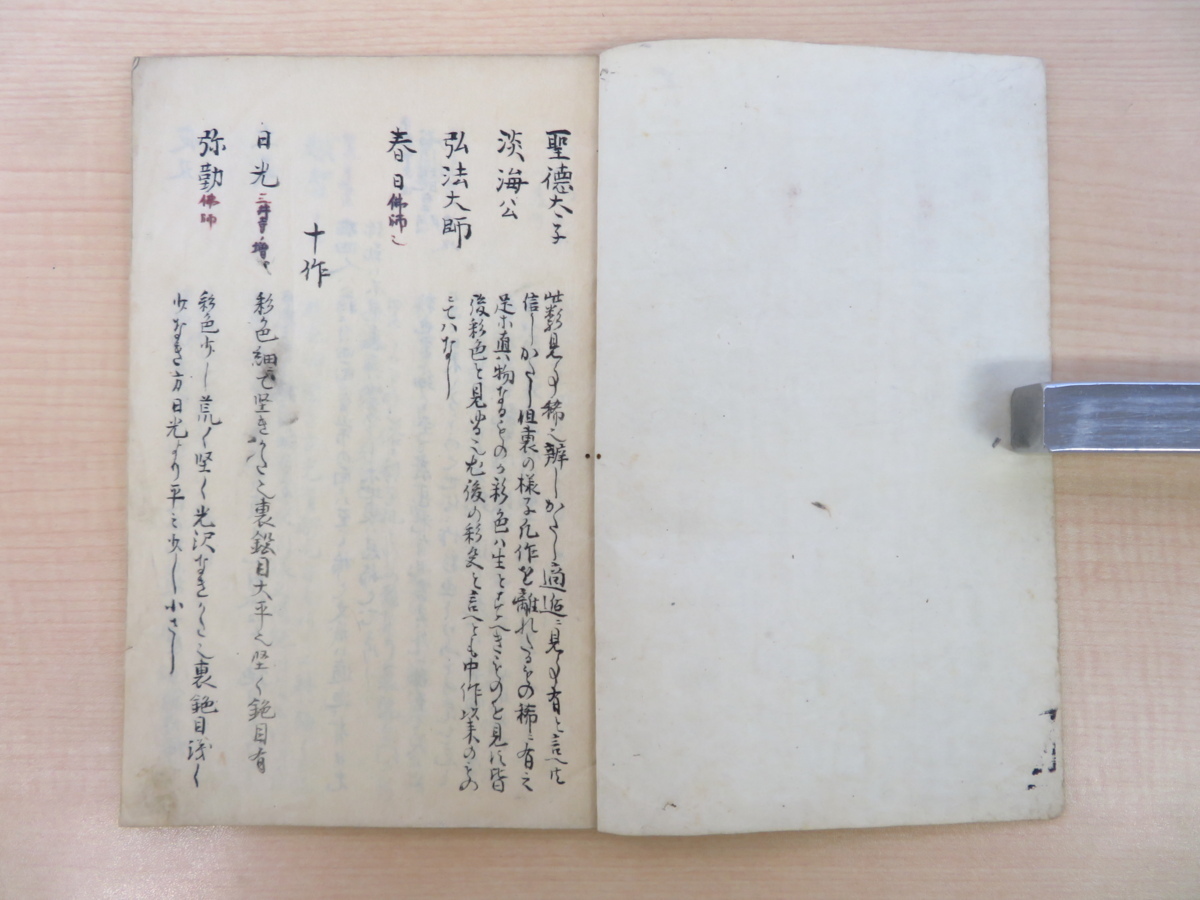 聖德太子
淡海公
弘法大師
春日佛師也
此類見事稀也辨しかたし適邂ニ見事有と言へ共
信しかたし但裏の様子凡作を離れたるもの稀ニ有之
是等真物なるものか彩色ハ生とすへきものと見へ皆
後彩色と見ゆる也尤後の彩色と言へとも中作以来のもの
ニてハなし
十作
日光 三井寺ノ増也
彩色細ニて堅きかた也裏鉋目大平也堅く鉋目有
弥勒佛師
彩色少し荒く堅く光沢なきかた也裏鉋目浅く
少なき方日光より平ニ少し小さし